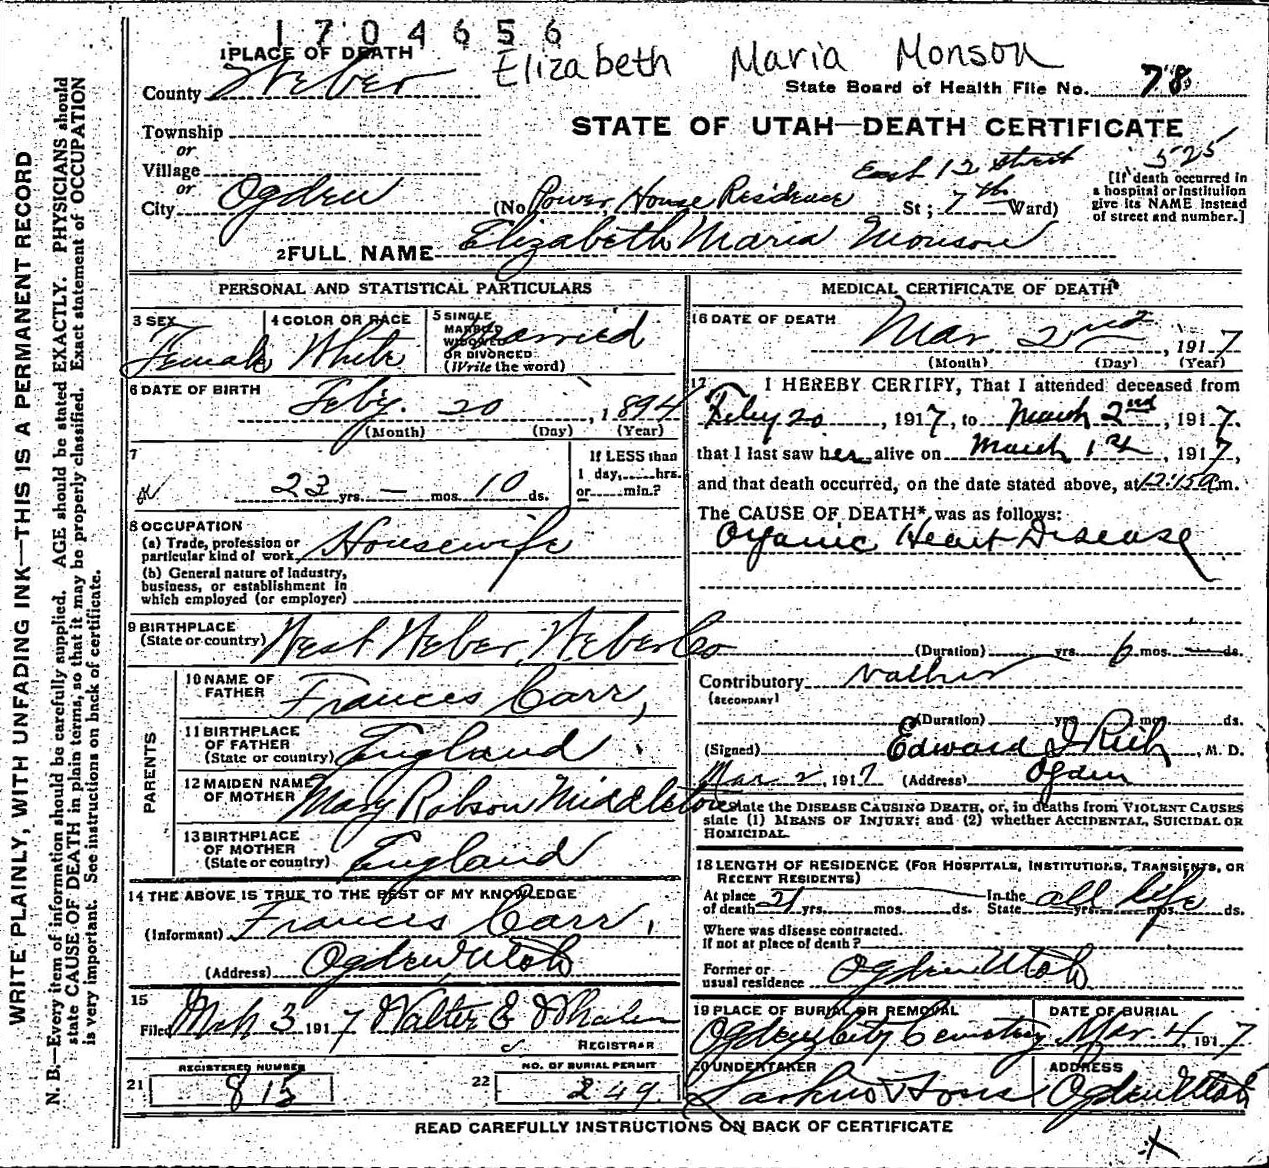 1704656
Elizabeth Maria Monson
1 PLACE OF DEATH
County Weber
State Board of Health File No. 78
Township
STATE OF UTAH—DEATH CERTIFICATE
or
Village
or
City Ogden
East 12 Street
525
(No Power House Residence St; 7th Ward)
[If death occurred in
a hospital or institution
give its NAME instead
of street and number.]
2 FULL NAME Elizabeth Maria Monson
PERSONAL AND STATISTICAL PARTICULARS
3 SEX
Female
4 COLOR OR RACE
White
5 SINGLE
MARRIED
WIDOWED
OR DIVORCED
(Write the word)
Married
6 DATE OF BIRTH
Feby. 20, 1894
(Month) (Day) (Year)
7
23 yrs. — mos. 10 ds.
If LESS than
1 day, hrs.
or min.?
8 OCCUPATION
(a) Trade, profession or
particular kind of work Housewife
(b) General nature of industry,
business, or establishment in
which employed (or employer)
9 BIRTHPLACE
(State or country) West Weber, Weber Co
PARENTS
10 NAME OF
FATHER Frances Carr,
11 BIRTHPLACE
OF FATHER
(State or country) England
12 MAIDEN NAME
OF MOTHER Mary Robson Middleton
13 BIRTHPLACE
OF MOTHER
(State or country) England
14 THE ABOVE IS TRUE TO THE BEST OF MY KNOWLEDGE
(Informant) Frances Carr,
(Address) Ogden Utah
15
Filed Mch 3 1917 Walter E Whalen
REGISTRAR
21 REGISTERED NUMBER
815
22 NO. OF BURIAL PERMIT
249.
MEDICAL CERTIFICATE OF DEATH
16 DATE OF DEATH
Mar 2nd, 1917
(Month) (Day) (Year)
17 I HEREBY CERTIFY, That I attended deceased from
Feby 20, 1917, to March 2nd, 1917.
that I last saw her alive on March 1st, 1917,
and that death occurred, on the date stated above, at 12:15 a.m.
The CAUSE OF DEATH* was as follows:
Organic Heart Disease
(Duration) yrs. 6 mos. — ds.
Contributory
(SECONDARY)
(Duration) yrs. mos. ds.
(Signed) Edward I Rich, M. D.
Mar 2, 1917 (Address) Ogden
state the DISEASE CAUSING DEATH, or, in deaths from VIOLENT CAUSES
state (1) MEANS OF INJURY; and (2) whether ACCIDENTAL, SUICIDAL OR
HOMICIDAL.
18 LENGTH OF RESIDENCE (FOR HOSPITALS, INSTITUTIONS, TRANSIENTS, OR
RECENT RESIDENTS)
At place
of death 21 yrs. mos. ds.
In the
State all life yrs. mos. ds.
Where was disease contracted.
If not at place of death?
Former or
usual residence Ogden Utah
19 PLACE OF BURIAL OR REMOVAL
Ogden City Cemetery
DATE OF BURIAL
Mar. 4, 1917
20 UNDERTAKER
Larkin & Sons
ADDRESS
Ogden Utah
READ CAREFULLY INSTRUCTIONS ON BACK OF CERTIFICATE
WRITE PLAINLY, WITH UNFADING INK—THIS IS A PERMANENT RECORD
N. B.—Every item of information should be carefully supplied. AGE should be stated EXACTLY. PHYSICIANS should
state CAUSE OF DEATH in plain terms, so that it may be properly classified. Exact statement of OCCUPATION
is very important. See instructions on back of certificate.